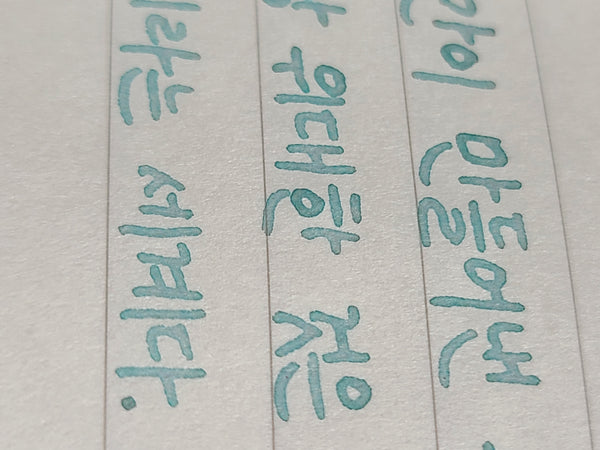 이 만들어낸
위대한 것은
라는 세계다.